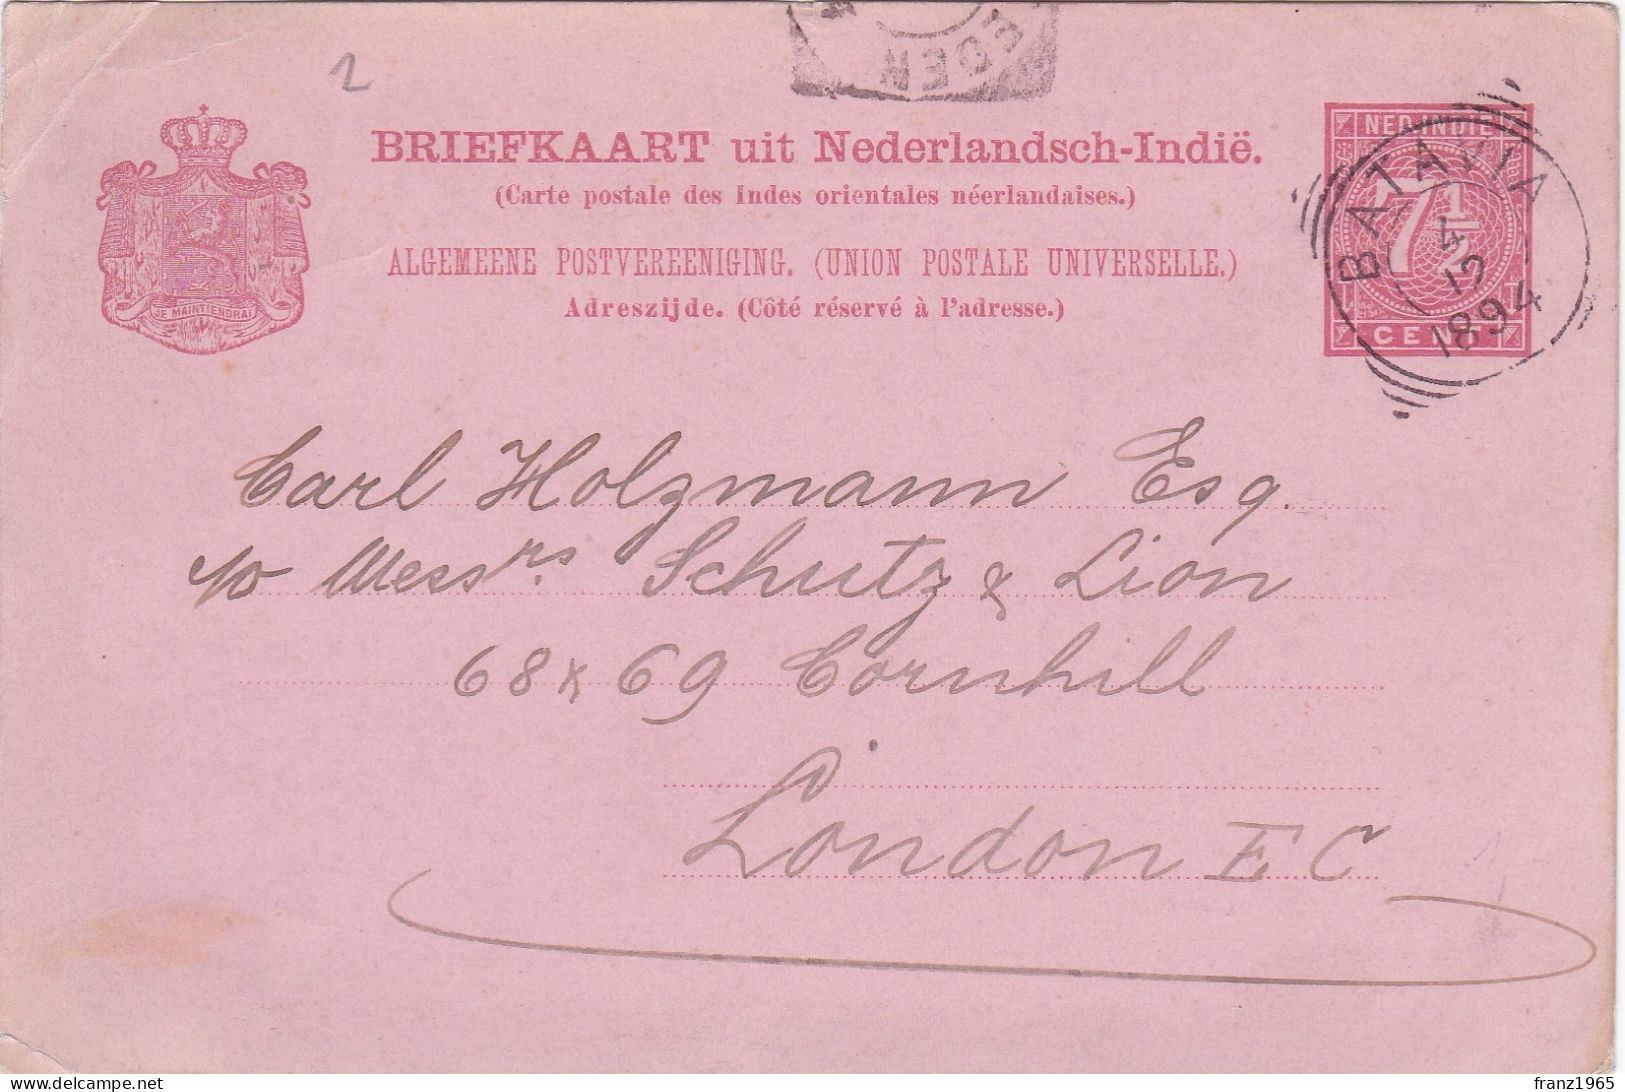 2
EDEN
BRIEFKAART uit Nederlandsch-Indië.
(Carte postale des Indes orientales néerlandaises.)
ALGEMEENE POSTVEREENIGING. (UNION POSTALE UNIVERSELLE.)
Adreszijde. (Côté réservé à l'adresse.)
JE MAINTIENDRAI
NED-INDIË
7½
CENT
BATAVIA
4
15
1894
Carl Holzmann Esq.
c/o Messrs Schutz & Lion
68 & 69 Cornhill
London E C
delcampe.net
franz1965